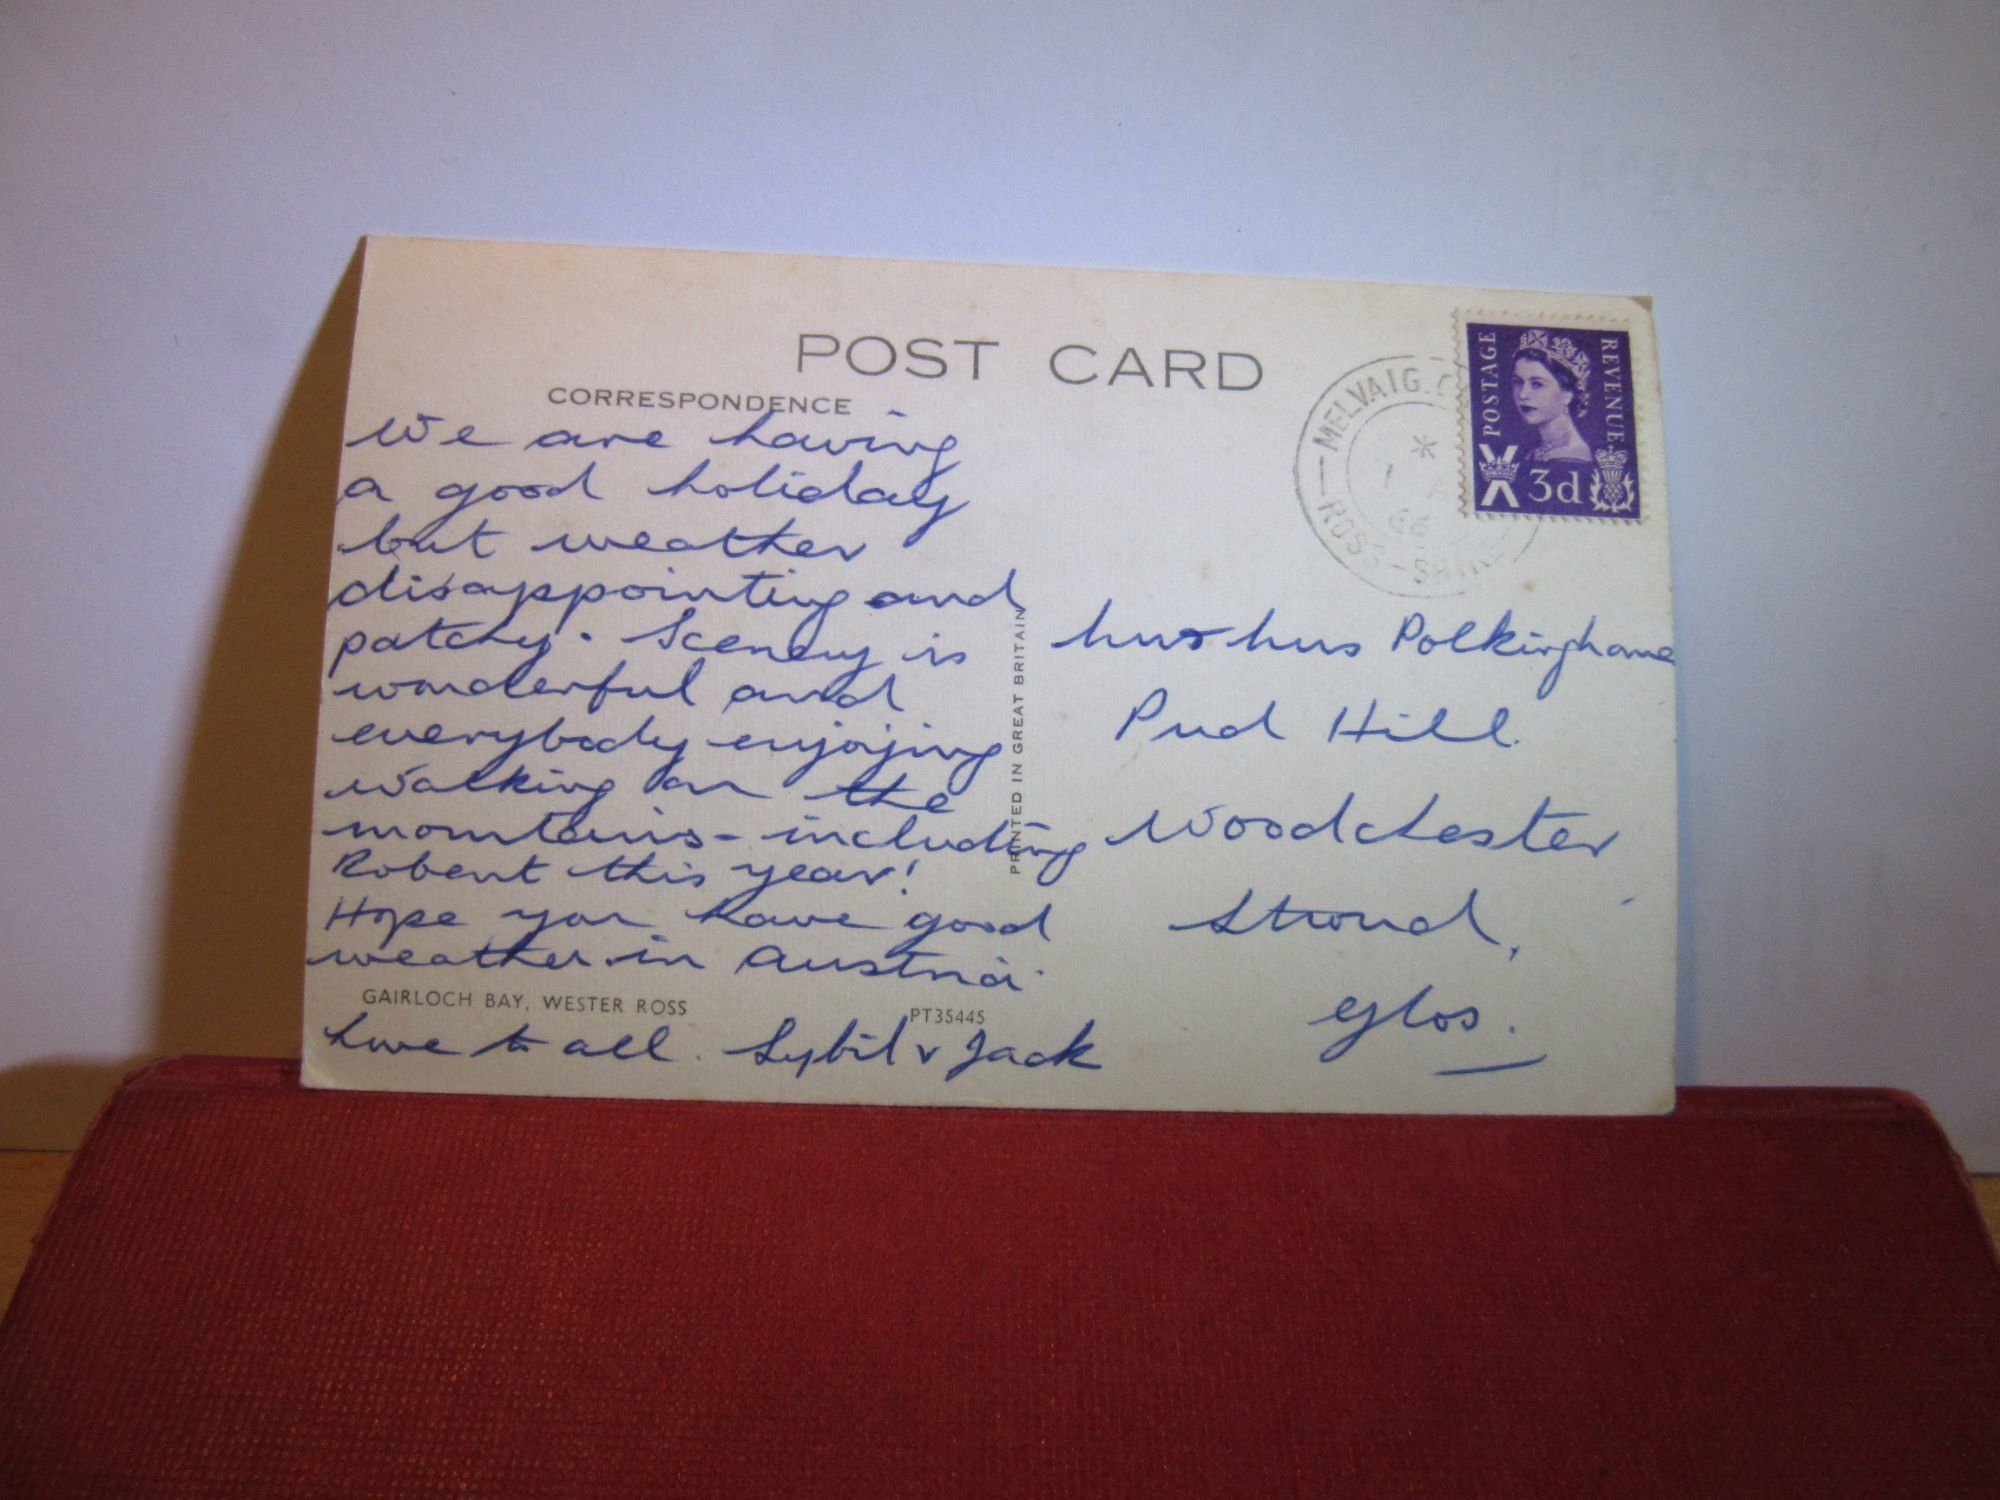 POST CARD
CORRESPONDENCE
We are having
a good holiday
but weather
disappointing and
patchy. Scenery is
wonderful and
everybody enjoying
walking on the
mountains - including
Robert this year!
Hope you have good
weather in Austria.
GAIRLOCH BAY, WESTER ROSS
PT35445
Love to all. Sybil & Jack
PRINTED IN GREAT BRITAIN
MELVAIG.
ROSS-SHIRE
66
POSTAGE
REVENUE
3d
Polkinghorne
Pud Hill
Woodchester
Stroud,
Glos.